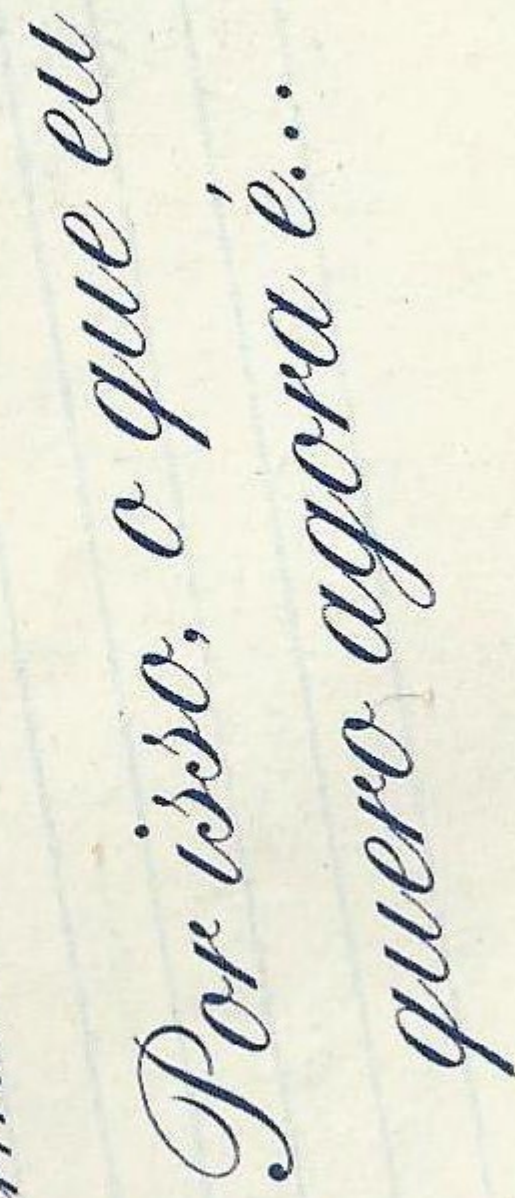 Por isso, o que eu
quero agora é...